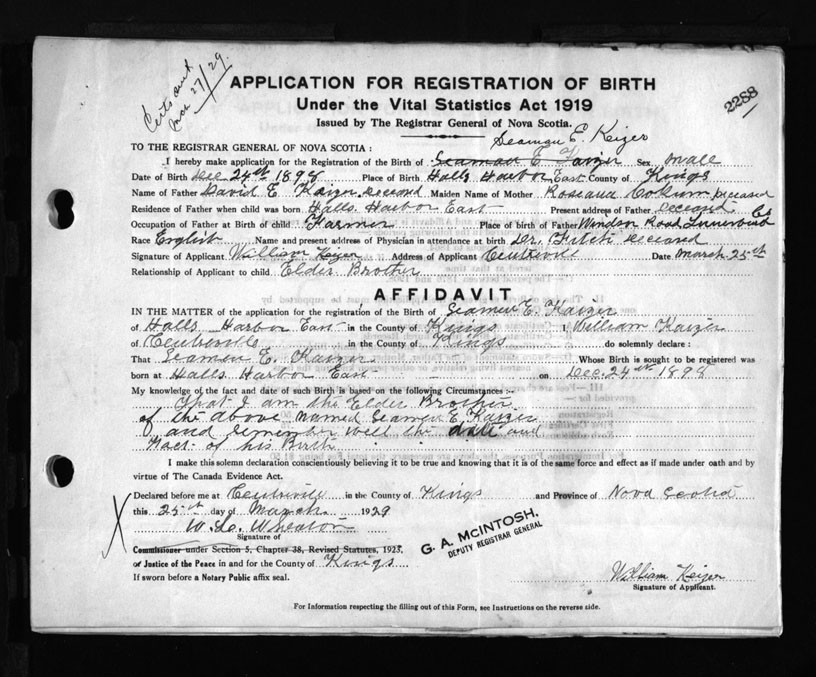 Certs sent
Mar 27/29.
APPLICATION FOR REGISTRATION OF BIRTH
2288
Under the Vital Statistics Act 1919
Issued by The Registrar General of Nova Scotia.
Seaman E. Keizer
TO THE REGISTRAR GENERAL OF NOVA SCOTIA :
I hereby make application for the Registration of the Birth of Seaman E. Kaizer Sex male
Date of Birth Dec 24th 1898 Place of Birth Halls Harbor East County of Kings
Name of Father David E Kaizer Deceased Maiden Name of Mother Roseana Deceased
Residence of Father when child was born Halls Harbor East Present address of Father Deceased
Occupation of Father at Birth of child Farmer Place of birth of Father Windsor Road Lunenburg Co
Race English Name and present address of Physician in attendance at birth Dr. Fitch Deceased
Signature of Applicant William Keizer Address of Applicant Centreville Date March 25th
Relationship of Applicant to child Elder Brother
AFFIDAVIT
IN THE MATTER of the application for the registration of the Birth of Seamen E. Kaizer
of Halls Harbor East in the County of Kings I, William Kaizer
of Centreville in the County of Kings do solemnly declare :
That Seamen E. Kaizer Whose Birth is sought to be registered was
born at Halls Harbor East on Dec. 24th 1898
My knowledge of the fact and date of such Birth is based on the following Circumstances :—
That I am the Elder Brother
of the above Named Seamen E. Kaizer
and remember well the date and
Fact of his Birth
I make this solemn declaration conscientiously believing it to be true and knowing that it is of the same force and effect as if made under oath and by
virtue of The Canada Evidence Act.
Declared before me at Centreville in the County of Kings and Province of Nova Scotia
this 25th day of March 1929
W. Wheaton
Signature of
Commissioner under Section 5, Chapter 38, Revised Statutes, 1923,
or Justice of the Peace in and for the County of Kings
If sworn before a Notary Public affix seal.
G. A. McINTOSH,
DEPUTY REGISTRAR GENERAL
William Keizer
Signature of Applicant.
For Information respecting the filling out of this Form, see Instructions on the reverse side.